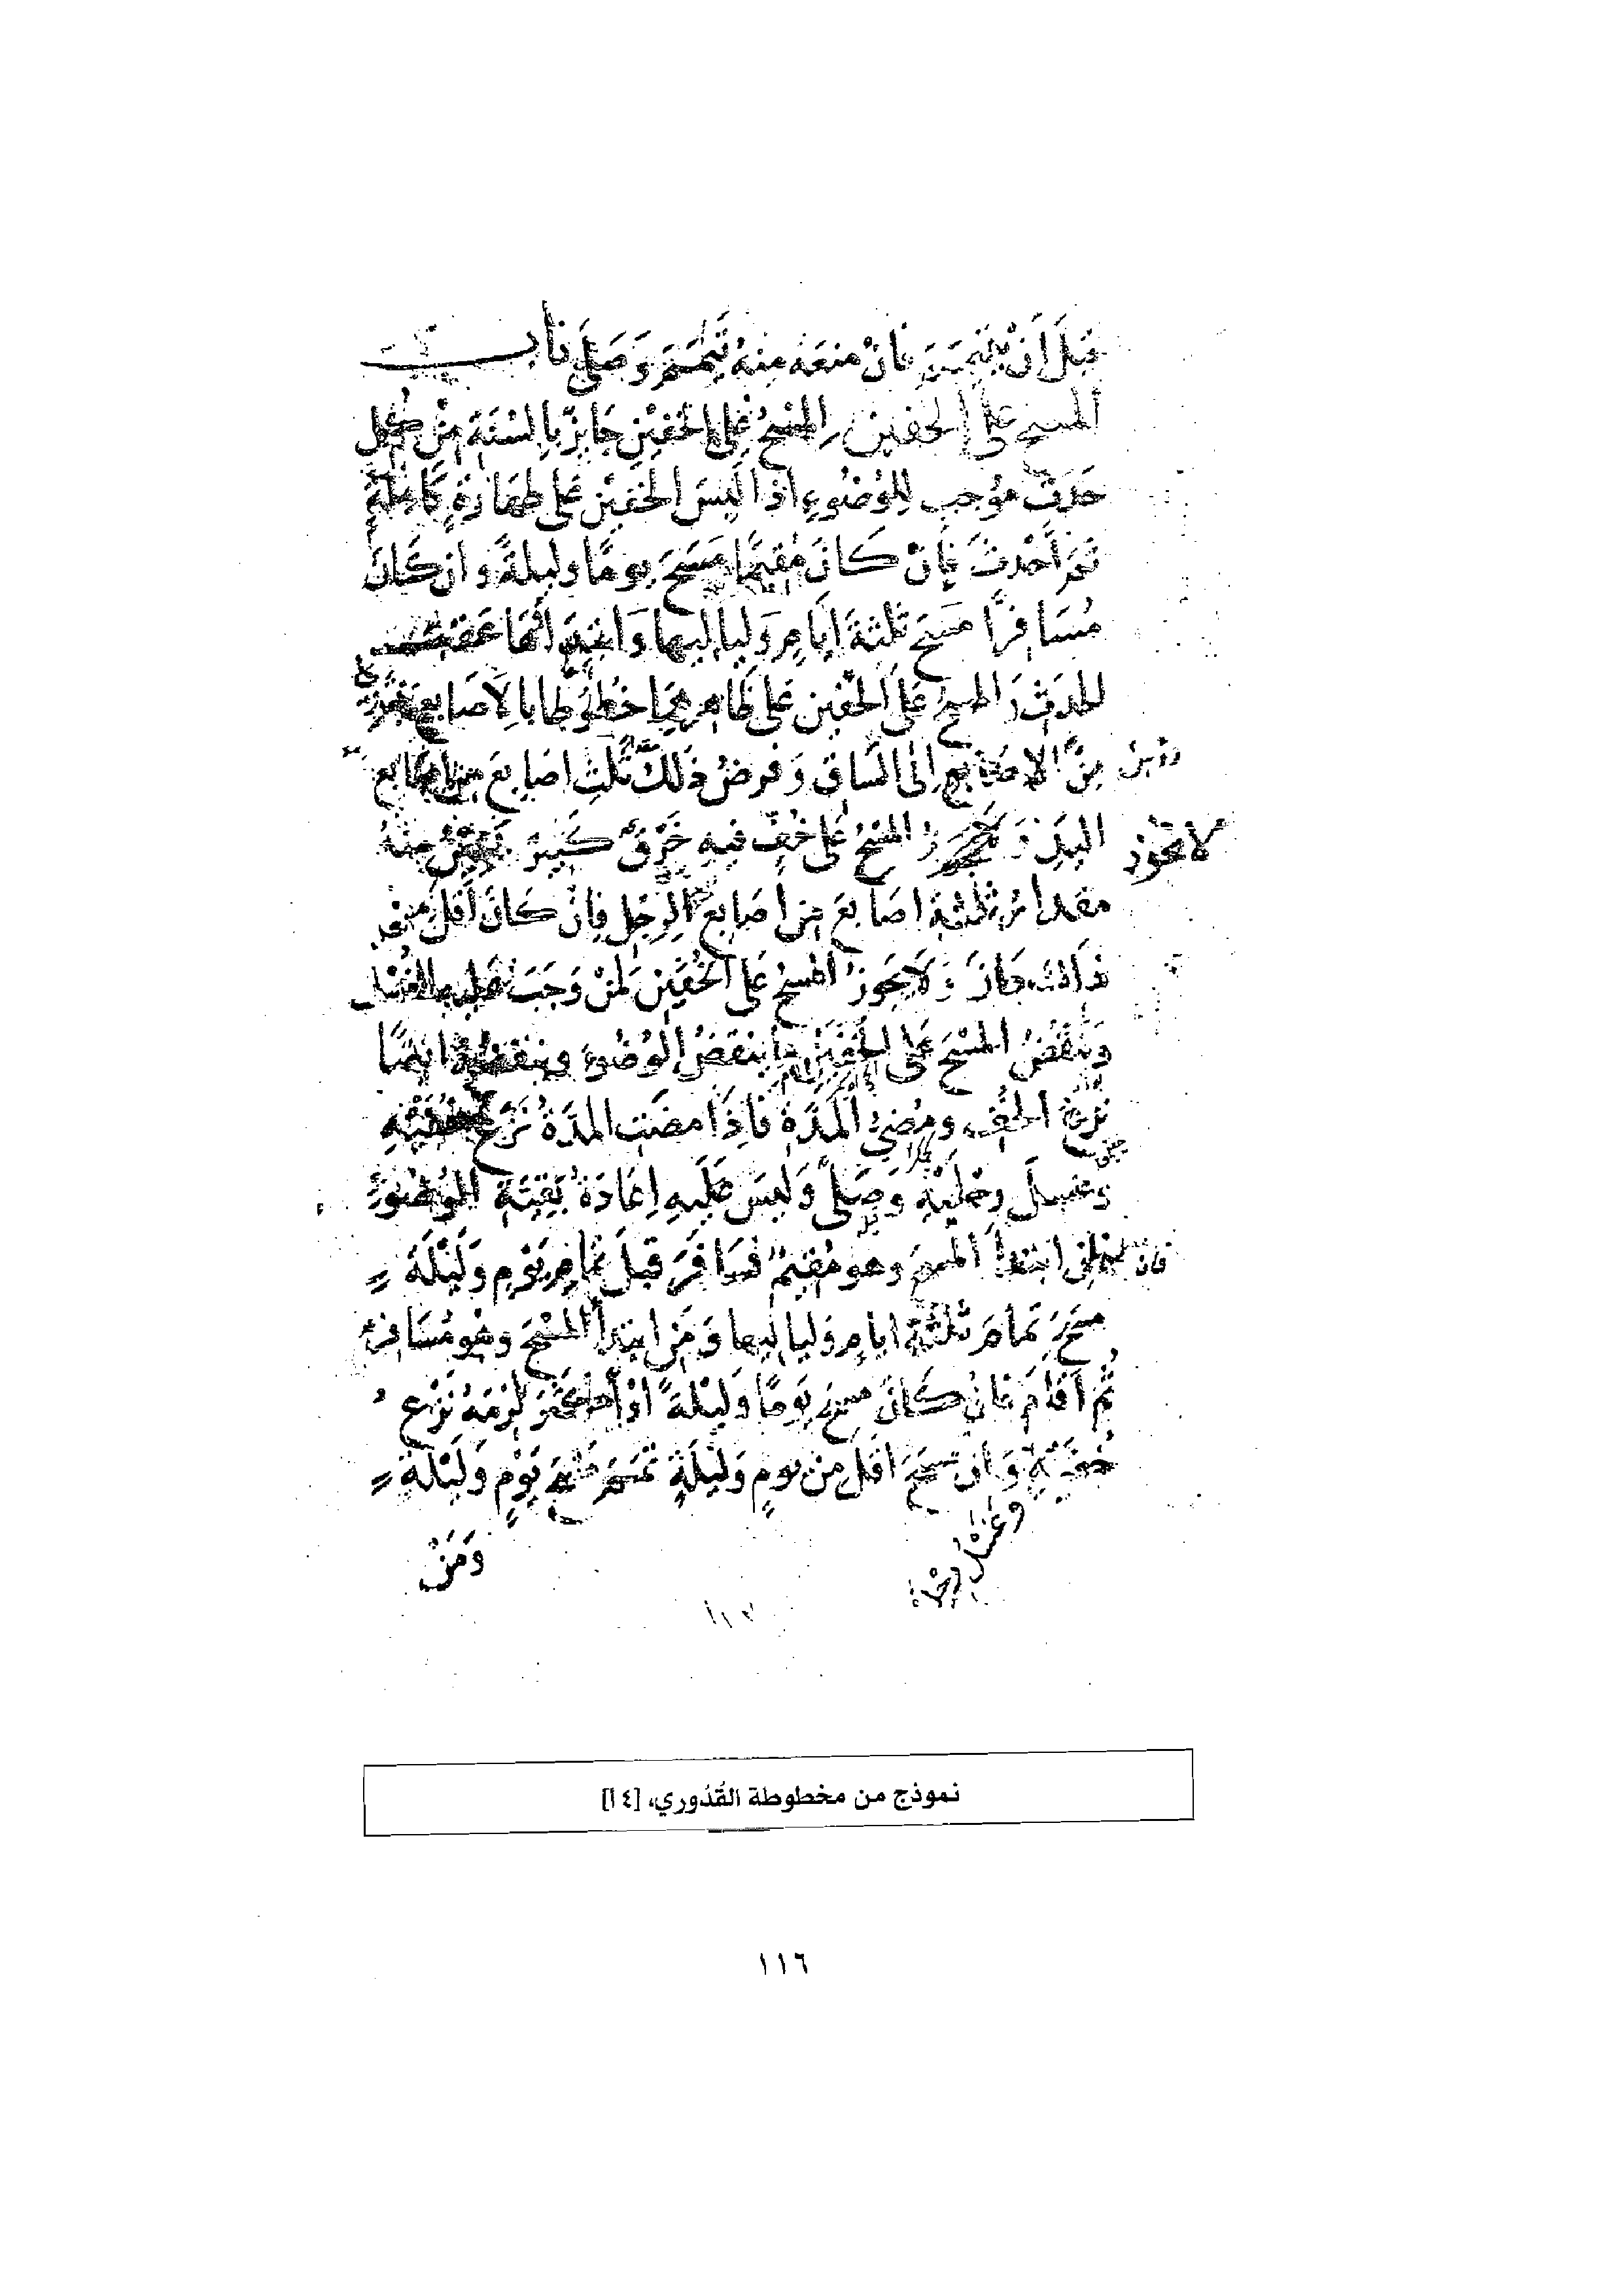 قَبلَ اَنْ يتيمم فَانْ منعَه مِنهُ تَيَمَّمَ وَصَلَّى بَابُ
المسح على الخفين المسْحُ عَلَى الخفين جَايزٌ بالسُّنَة مِنْ كُل
حَدَثٍ مُوْجبٍ لِلوُضُوءِ اذَا لَبِسَ الخفيْن عَلى طهَارَةٍ كامِلَةٍ
ثم اَحْدَثَ فَانْ كَانَ مُقِيمًا مَسَحَ يومًا وليلةً وَان كَانَ
مُسَافِرًا مَسَحَ ثَلثةَ ايَامٍ وَلياليها وَابتداؤها عقيب
الحدَثِ والمسحُ عَلَى الخُفَّين عَلى ظَاهرهمَا خُطُوطًا بالاَصَابع
مِنَ الاصَابع اِلَى السَّاق وَفرضُ ذلك ثَلث اصَابِعَ من اصابع
اليد وَلا يجوزُ المسْحُ عَلى خُفٍّ فيهِ خَرْقٌ كَبيرٌ يَتَبَيَّنُ مِنْهُ
لا يجوز
مقدارُ ثَلثةِ اصَابعَ مِن اصَابعِ الرِّجْل فَانْ كَانَ اَقلَّ مِنْ
ذَالكَ جَازَ وَلَا يَجوزُ المسحُ عَلى الخُفَّين لِمَنْ وَجَبَ عَليه الغُسْل
وَيَنْقُضُ المسْحَ عَلى الخفين مَا يَنقضُ الوُضُوءَ وينقضُهُ ايضًا
نزْعُ الخُفِّ ومُضيُّ المدَّةِ فَاِذَا مضَتِ المدَّةُ نَزَعَ خُفَّيْهِ
وغسلَ رِجْليْهِ وَصَلَّى وَلَيسَ عَلَيهِ اِعَادَةُ بَقِيَّةِ الوُضُوءِ
وَمَنِ ابتدَأ المسحَ وهو مُقيمٌ فسَافَرَ قبلَ تمامِ يَوْمٍ وَلَيْلَةٍ
مسَحَ تمامَ ثَلثةِ ايامٍ ولياليها وَمَنِ ابتدأ المسْحَ وهو مُسَافرٌ
ثُمَّ اَقَامَ فَانْ كَانَ مسحَ يَومًا وَلَيْلةً اوْ اَكثرَ لَزِمَهُ نَزْعُ
خُفَّيْهِ وَان مسحَ اقلَّ مِنْ يومٍ وَلَيْلَةٍ تمَّمَ مَسْحَ يَوْمٍ وَلَيْلَةٍ
وغَسْلُ
وَمَنْ
نموذج من مخطوطة القُدُوري، [١٤أ]
١١٦